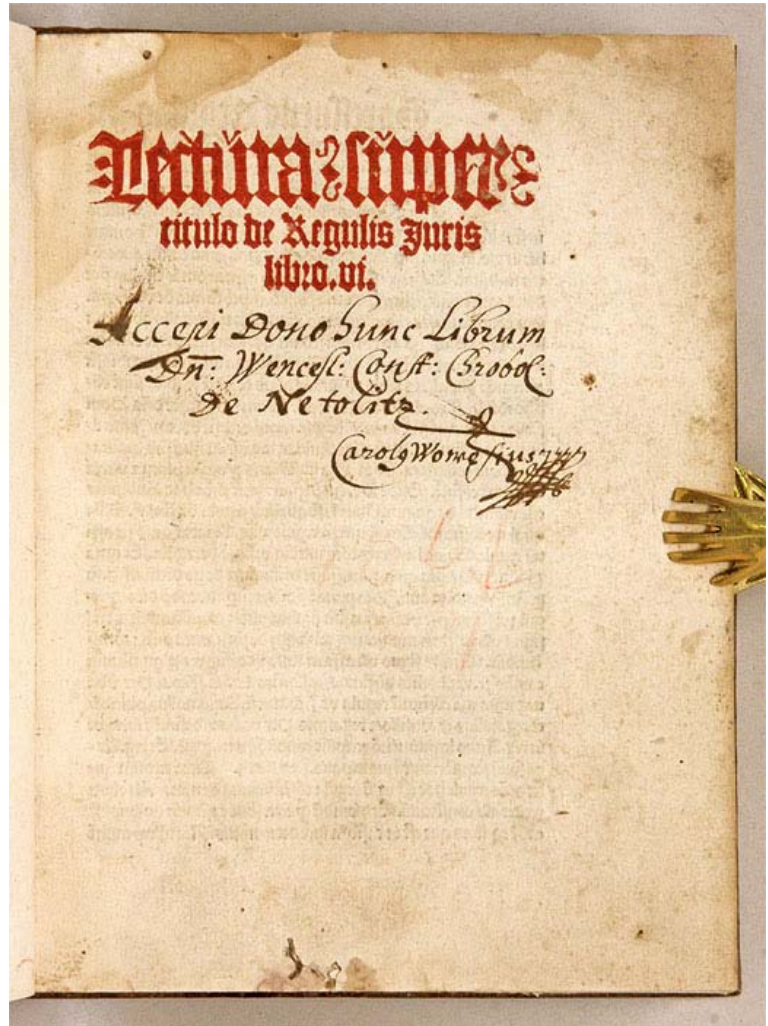 Lectura super
titulo de Regulis Juris
libro.vi.
Accepi Dono hunc Librum
Dn̄: Wencesl: Const: Chrobol:
De Netolitz.
Carolꝰ